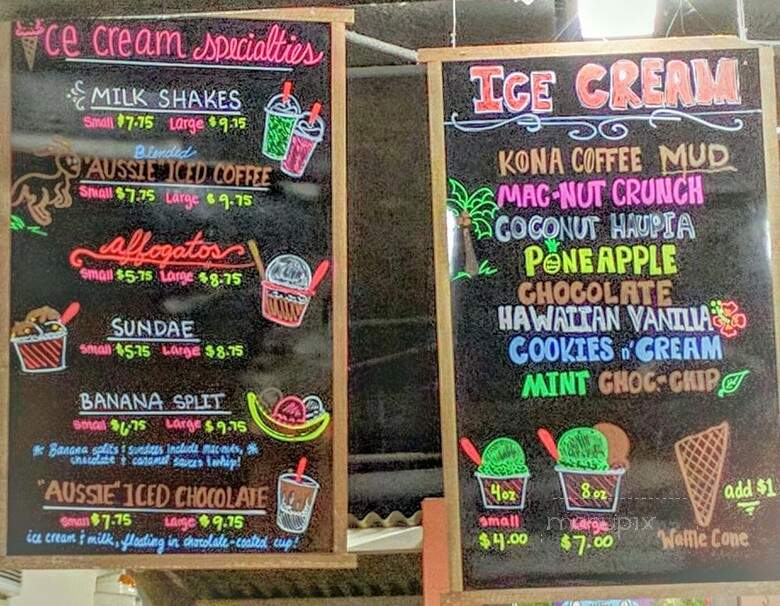 ice cream specialties
MILK SHAKES
Small $7.75 Large $9.75
Blended
"AUSSIE" ICED COFFEE
Small $7.75 Large $9.75
affogatos
Small $5.75 Large $8.75
SUNDAE
Small $5.75 Large $8.75
BANANA SPLIT
Small $6.75 Large $9.75
* Banana splits & sundaes include mac-nuts, *
chocolate & caramel sauces & whip!
"AUSSIE" ICED CHOCOLATE
Small $7.75 Large $9.75
ice cream & milk, floating in chocolate-coated cup!
ICE CREAM
KONA COFFEE MUD
MAC-NUT CRUNCH
COCONUT HAUPIA
PINEAPPLE
CHOCOLATE
HAWAIIAN VANILLA
COOKIES n' CREAM
MINT CHOC-CHIP
4oz
small
$4.00
8oz
large
$7.00
add $1
Waffle Cone
menupix